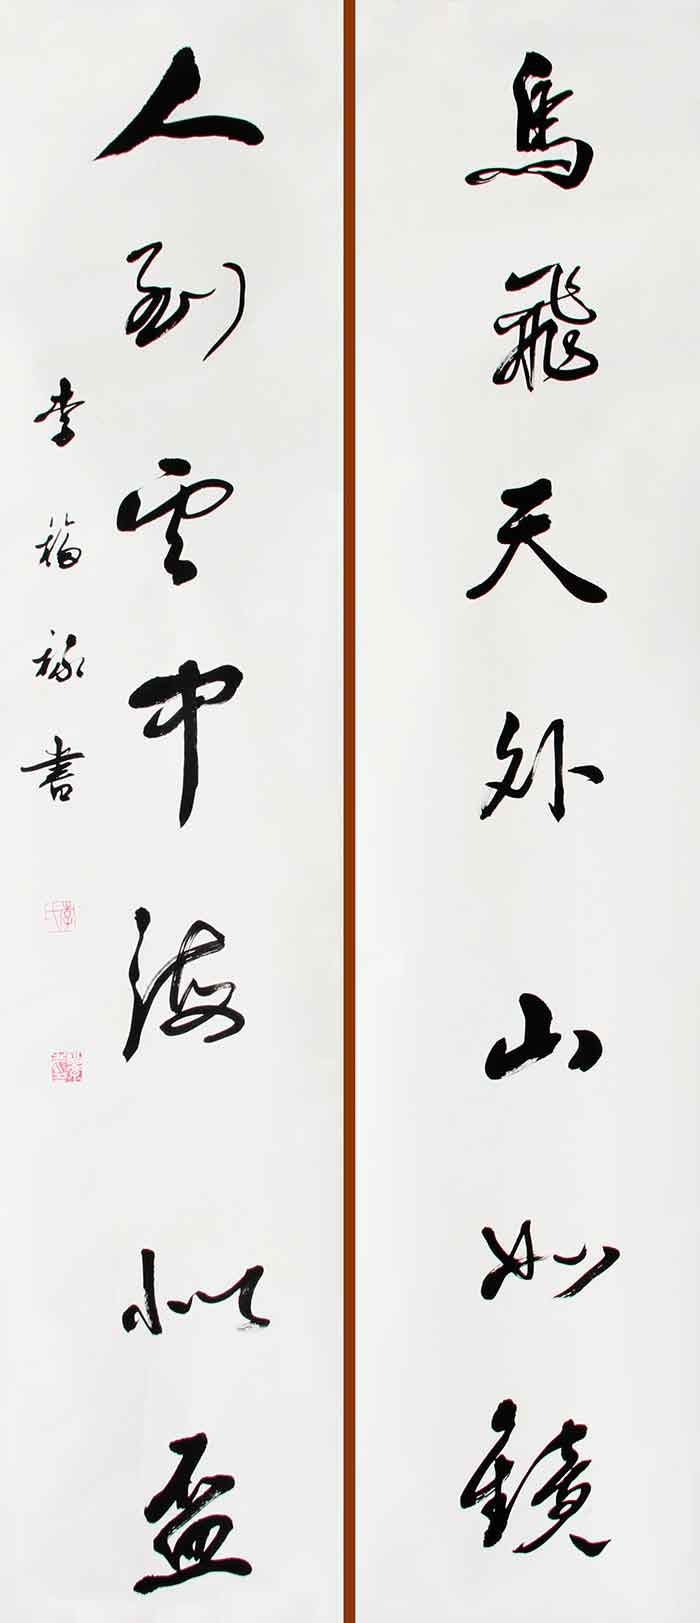 鳥飛天外山如鏡
人到雲中海似盃
李福禄書
李氏